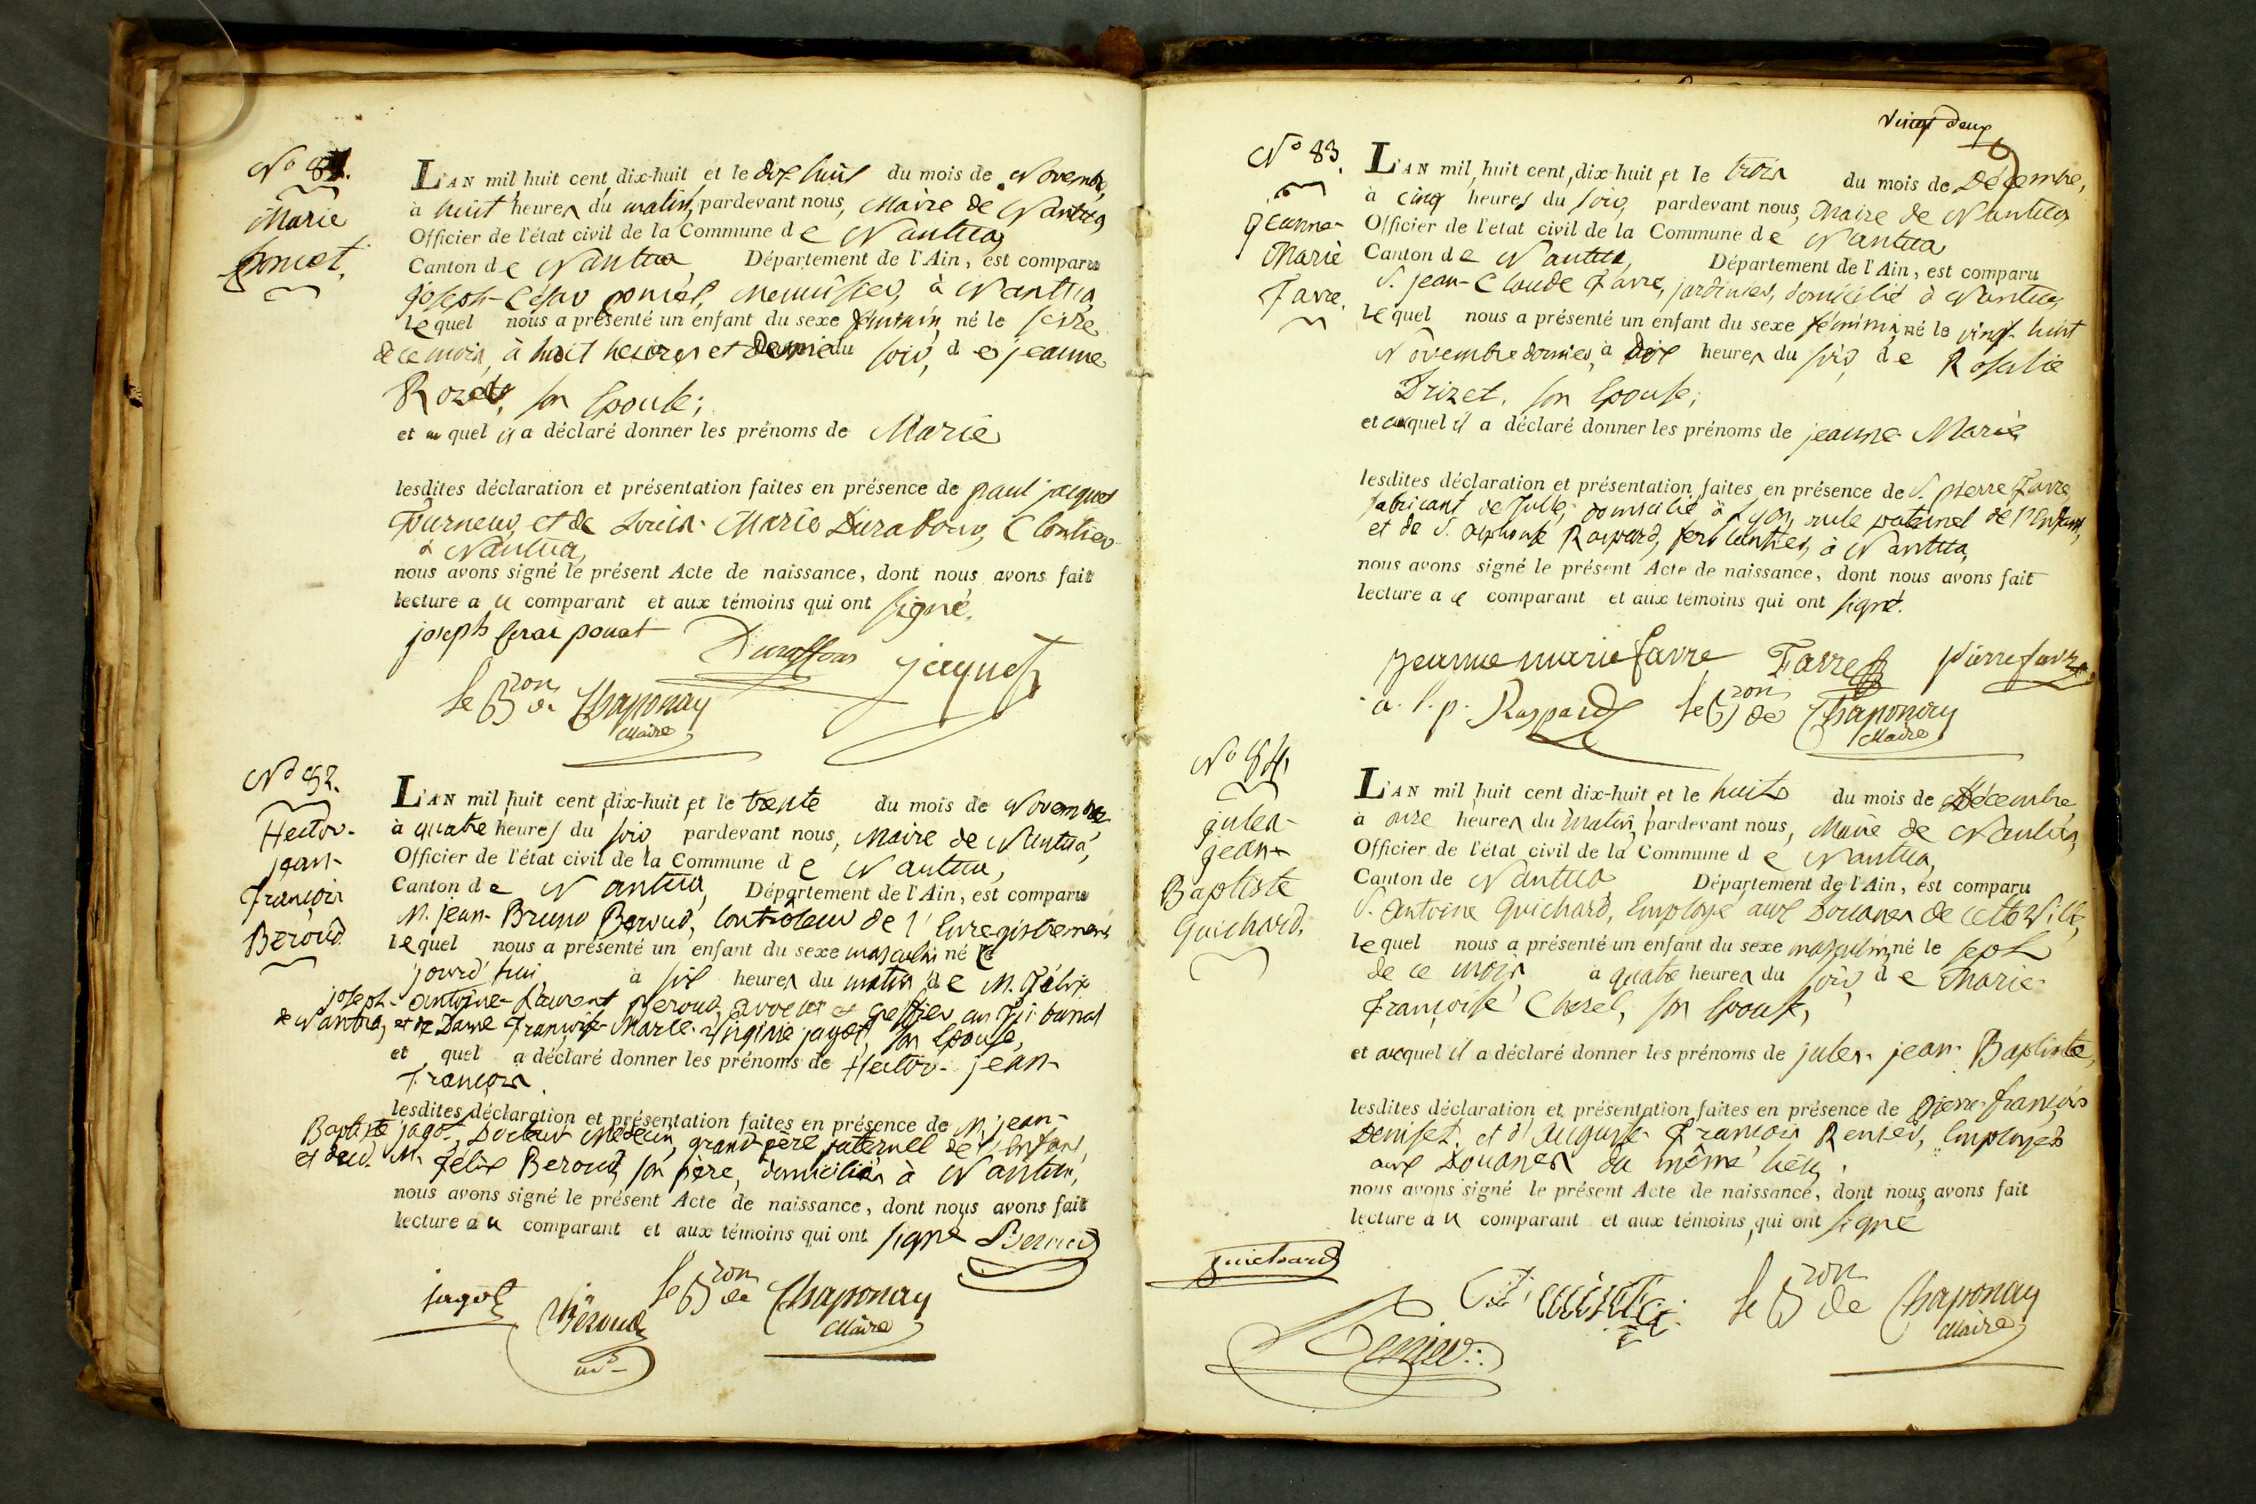 No 81.
Marie
ponçet.
L'AN mil huit cent dix-huit et le dix huit du mois de Novembre,
à huit heures du matin, pardevant nous, Maire de Nantua,
Officier de l'état civil de la Commune de Nantua,
Canton de Nantua, Département de l'Ain, est comparu
joseph-César ponçet, Menuisier, à Nantua,
lequel nous a présenté un enfant du sexe féminin, né le seize
de ce mois, à huit heures et demie du soir, de jeanne
Rozet, son Epouse;
et auquel il a déclaré donner les prénoms de Marie
lesdites déclaration et présentation faites en présence de paul jacquet
Tourneur, et de Louis-Marie Duraffour, Cloutier
à Nantua,
nous avons signé le présent Acte de naissance, dont nous avons fait
lecture au comparant et aux témoins qui ont signé.
joseph
Duraffour jaquet
le Bon de Chaponay
Maire
No 82.
Hector-
jean-
françois
Beroud.
L'AN mil huit cent dix-huit et le trente du mois de Novembre
à quatre heures du soir, pardevant nous, Maire de Nantua,
Officier de l'état civil de la Commune de Nantua,
Canton de Nantua, Département de l'Ain, est comparu
M. jean-Bruno Beroud, Contrôleur de l'Enregistrement
lequel nous a présenté un enfant du sexe masculin né ce
jourd'hui à six heures du matin de M. Félix
joseph-antoine-Laurent Beroud, avocat et Greffier au Tribunal
de Nantua, et de Dame françoise-Marie-Virginie jagot, son Epouse,
et quel a déclaré donner les prénoms de Hector-jean-
françois.
lesdites déclaration et présentation faites en présence de M. jean-
Baptiste jagot, Docteur Médecin, grand père paternel de l'Enfant,
et de M. félix Beroud, son père, domiciliés à Nantua,
nous avons signé le présent Acte de naissance, dont nous avons fait
lecture au comparant et aux témoins qui ont signé Beroud
jagot Béroud le Bon de Chaponay
Maire
vingt deux
No 83.
jeanne-
Marie
Favre.
L'AN mil huit cent dix-huit et le trois du mois de Décembre,
à cinq heures du soir, pardevant nous, Maire de Nantua,
Officier de l'état civil de la Commune de Nantua
Canton de Nantua, Département de l'Ain, est comparu
S. jean-Claude Favre, jardinier, domicilié à Nantua,
lequel nous a présenté un enfant du sexe féminin, né le vingt-huit
Novembre dernier, à dix heures du soir, de Rosalie
Drizet, son Epouse;
et auquel il a déclaré donner les prénoms de jeanne-Marie
lesdites déclaration et présentation faites en présence de S. pierre Favre,
fabricant de Tulle, domicilié à Lyon, oncle paternel de l'Enfant,
et de S. alphonse Raspard, ferblantier, à Nantua,
nous avons signé le présent Acte de naissance, dont nous avons fait
lecture au comparant et aux témoins qui ont signé.
jeanne marie favre Favre pierre favre
a. l. p. Raspard le Bon de Chaponay
Maire
No 84.
jules-
jean-
Baptiste
Guichard.
L'AN mil huit cent dix-huit et le huit du mois de Décembre
à onze heures du matin, pardevant nous, Maire de Nantua,
Officier de l'état civil de la Commune de Nantua,
Canton de Nantua Département de l'Ain, est comparu
S. antoine Guichard, Employé aux Douanes de cette Ville,
lequel nous a présenté un enfant du sexe masculin, né le sept
de ce mois, à quatre heures du soir, de Marie-
françoise Cherel, son Epouse,
et auquel il a déclaré donner les prénoms de jules-jean-Baptiste,
lesdites déclaration et présentation faites en présence de pierre-françois
Deniset, et d'auguste-françois Renier, Employés
aux Douanes du même lieu.
nous avons signé le présent Acte de naissance, dont nous avons fait
lecture au comparant et aux témoins qui ont signé
guichard
Renier le Bon de Chaponay
Maire